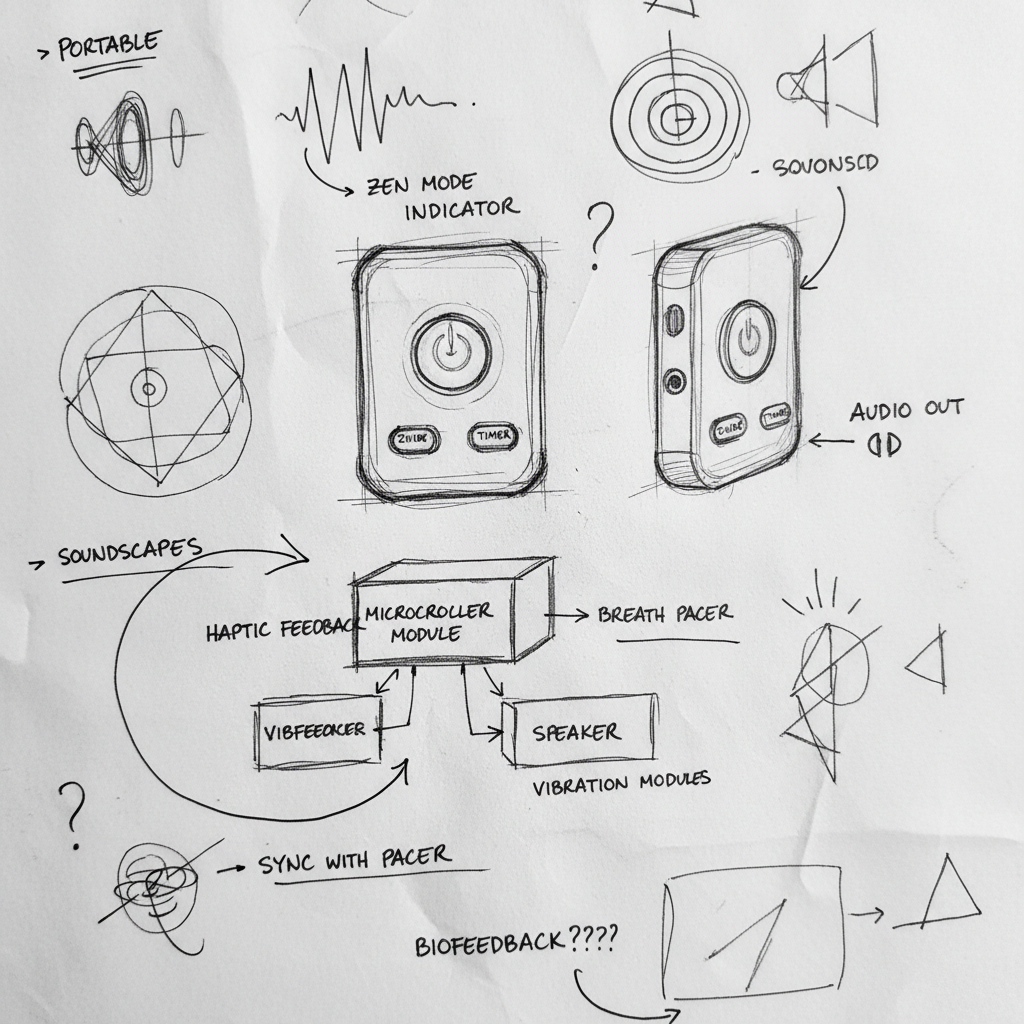 > PORTABLE
ZEN MODE
INDICATOR
- SOUONSCD
?
TIMER
AUDIO OUT
> SOUNDSCAPES
HAPTIC FEEDBACK
MICROCROLLER
MODULE
BREATH PACER
SPEAKER
VIBRATION MODULES
?
SYNC WITH PACER
BIOFEEDBACK????